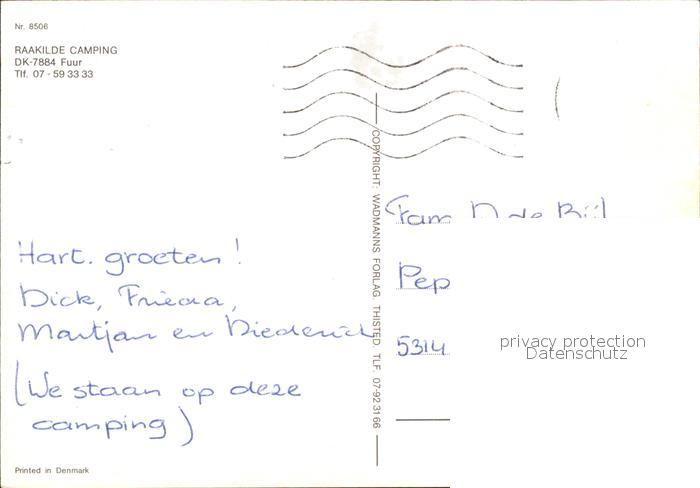 Nr. 8506
RAAKILDE CAMPING
DK-7884 Fuur
Tlf. 07 - 59 33 33
COPYRIGHT: WADMANNS FORLAG, THISTED TLF. 07-92 31 66
Hart. groeten!
Dick, Frieda,
Martjan en Diederick
(We staan op deze
camping)
Fam D de Bijl
Pep
5314
privacy protection
Datenschutz
Printed in Denmark